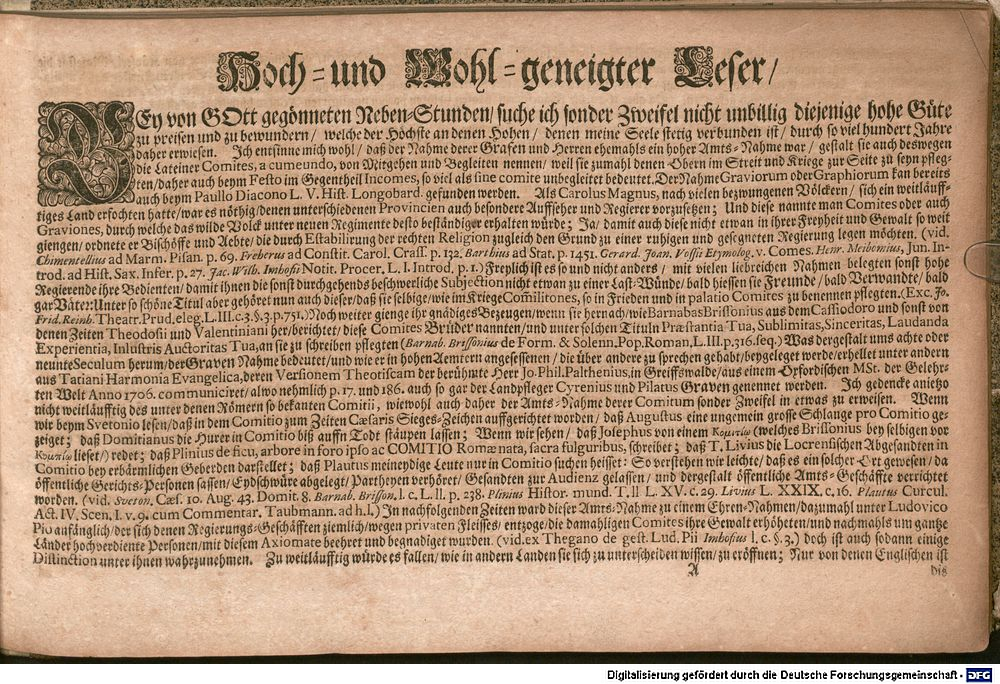 Hoch-und Wohl-geneigter Leser/
BEy von GOtt gegönneten Neben-Stunden/ suche ich sonder Zweifel nicht unbillig diejenige hohe Güte
zu preisen und zu bewundern/ welche der Höchste an denen Hohen/ denen meine Seele stetig verbunden ist/ durch so viel hundert Jahre
daher erwiesen. Ich entsinne mich wohl/ daß der Nahme derer Grafen und Herren ehemahls ein hoher Amts-Nahme war/ gestalt sie auch deswegen
die Lateiner Comites, a cumeundo, von Mitgehen und Begleiten nennen/ weil sie zumahl denen Obern im Streit und Kriege zur Seite zu seyn pfleg-
ten/ daher auch beym Festo im Gegentheil Incomes, so viel als sine comite unbegleitet bedeutet. Der Nahme Graviorum oder Graphiorum kan bereits
auch beym Paullo Diacono L. V. Hist. Longobard. gefunden werden. Als Carolus Magnus, nach vielen bezwungenen Völckern/ sich ein weitläuff-
tiges Land erfochten hatte/ war es nöthig/ denen unterschiedenen Provincien auch besondere Auffseher und Regierer vorzusetzen; Und diese nannte man Comites oder auch
Graviones, durch welche das wilde Volck unter neuen Regimente desto beständiger erhalten würde; Ja/ damit auch diese nicht etwan in ihrer Freyheit und Gewalt so weit
giengen/ ordnete er Bischöffe und Aebte/ die durch Estabilirung der rechten Religion zugleich den Grund zu einer ruhigen und gesegneten Regierung legen möchten. (vid.
Chimentellius ad Marm. Pisan. p. 69. Freherus ad Constit. Carol. Crass. p. 132. Barthius ad Stat. p. 1451. Gerard. Joan. Vossii Etymolog. v. Comes. Henr. Meibomius, Jun. In-
trod. ad Hist. Sax. Infer. p. 27. Jac. Wilh. Imhofii Notit. Procer. L. I. Introd. p. 1.) Freylich ist es so und nicht anders/ mit vielen liebreichen Nahmen belegten sonst hohe
Regierende ihre Bedienten/ damit ihnen die sonst durchgehends beschwerliche Subjection nicht etwan zu einer Last-Würde/ bald hiessen sie Freunde/ bald Verwandte/ bald
gar Väter: Unter so schöne Titul aber gehöret nun auch dieser/ daß sie selbige/ wie im Kriege Com̃ilitones, so in Frieden und in palatio Comites zu benennen pflegten. (Exc. Jo.
Frid. Reinh. Theatr. Prud. eleg. L. III. c. 3. §. 3. p. 751.) Noch weiter gienge ihr gnädiges Bezeugen/ wenn sie hernach/ wie Barnabas Brissonius aus dem Cassiodoro und sonst von
denen Zeiten Theodosii und Valentiniani her/ berichtet/ diese Comites Brüder nannten/ und unter solchen Tituln Præstantia Tua, Sublimitas, Sinceritas, Laudanda
Experientia, Inlustris Auctoritas Tua, an sie zu schreiben pflegten (Barnab. Brissonius de Form. & Solenn. Pop. Roman. L. III. p. 316. seq.) Was dergestalt ums achte oder
neunte Seculum herum/ der Graven Nahme bedeutet/ und wie er in hohen Aemtern angesessenen/ die über andere zu sprechen gehabt/ beygeleget werde/ erhellet unter andern
aus Tatiani Harmonia Evangelica, deren Versionem Theotiscam der berühmte Herr Jo. Phil. Palthenius, in Greiffswalde/ aus einem Oxfordischen MSt. der Gelehr-
ten Welt Anno 1706. communiciret/ alwo nehmlich p. 17. und 186. auch so gar der Landpfleger Cyrenius und Pilatus Graven genennet werden. Ich gedencke anietzo
nicht weitläufftig des unter denen Römern so bekanten Comitii, wiewohl auch daher der Amts-Nahme derer Comitum sonder Zweifel in etwas zu erweisen. Wenn
wir beym Svetonio lesen/ daß in dem Comitio zum Zeiten Cæsaris Sieges-Zeichen auffgerichtet worden/ daß Augustus eine ungemein grosse Schlange pro Comitio ge-
zeiget; daß Domitianus die Hurer in Comitio biß auffn Todt stäupen lassen; Wenn wir sehen/ daß Josephus von einem Κομιτίῳ (welches Brissonius bey selbigen vor
Κομιτίῳ lieset/) redet; daß Plinius de ficu, arbore in foro ipso ac COMITIO Romæ nata, sacra fulguribus, schreibet; daß T. Livius die Locrensischen Abgesandten in
Comitio bey erbärmlichen Geberden darstellet; daß Plautus meineydige Leute nur in Comitio suchen heisset: So verstehen wir leichte/ daß es ein solcher Ort gewesen/ da
öffentliche Gerichts-Personen sassen/ Eydschwüre abgelegt/ Partheyen verhöret/ Gesandten zur Audienz gelassen/ und dergestalt öffentliche Amts-Geschäffte verrichtet
worden. (vid. Sveton. Cæs. 10. Aug. 43. Domit. 8. Barnab. Brisson. l. c. L. II. p. 238. Plinius Histor. mund. T. II L. XV. c. 29. Livius L. XXIX. c. 16. Plautus Curcul.
Act. IV. Scen. I. v. 9. cum Commentar. Taubmann. ad h. l.) In nachfolgenden Zeiten ward dieser Amts-Nahme zu einem Ehren-Nahmen/ da zumahl unter Ludovico
Pio anfänglich/ der sich denen Regierungs-Geschäfften ziemlich/ wegen privaten Fleisses/ entzoge/ die damahligen Comites ihre Gewalt erhöheten/ und nachmahls um gantze
Länder hochverdiente Personen/ mit diesem Axiomate beehret und begnadiget wurden. (vid. ex Thegano de gest. Lud. Pii Imhofius l. c. §. 3.) doch ist auch sodann einige
Distinction unter ihnen wahrzunehmen. Zu weitläufftig würde es fallen/ wie in andern Landen sie sich zu unterscheiden wissen/ zu eröffnen; Nur von denen Englischen ist
A
dis
Digitalisierung gefördert durch die Deutsche Forschungsgemeinschaft - DFG